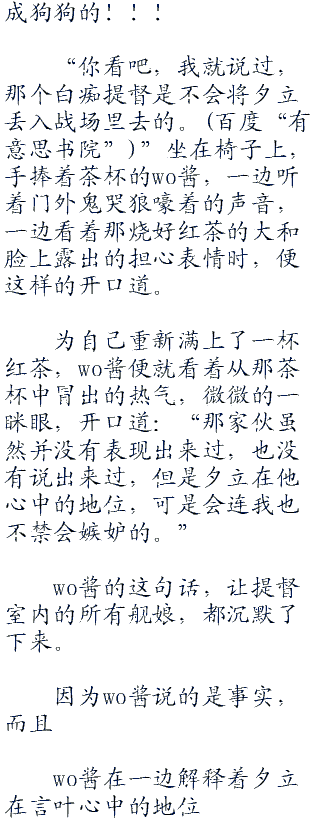 成狗狗的！！！
“你看吧，我就说过，
那个白痴提督是不会将夕立
丢入战场里去的。(百度“有
意思书院”)”坐在椅子上，
手捧着茶杯的wo酱，一边听
着门外鬼哭狼嚎着的声音，
一边看着那烧好红茶的大和
脸上露出的担心表情时，便
这样的开口道。
为自己重新满上了一杯
红茶，wo酱便就看着从那茶
杯中冒出的热气，微微的一
眯眼，开口道：“那家伙虽
然并没有表现出来过，也没
有说出来过，但是夕立在他
心中的地位，可是会连我也
不禁会嫉妒的。”
wo酱的这句话，让提督
室内的所有舰娘，都沉默了
下来。
因为wo酱说的是事实，
而且
wo酱在一边解释着夕立
在言叶心中的地位